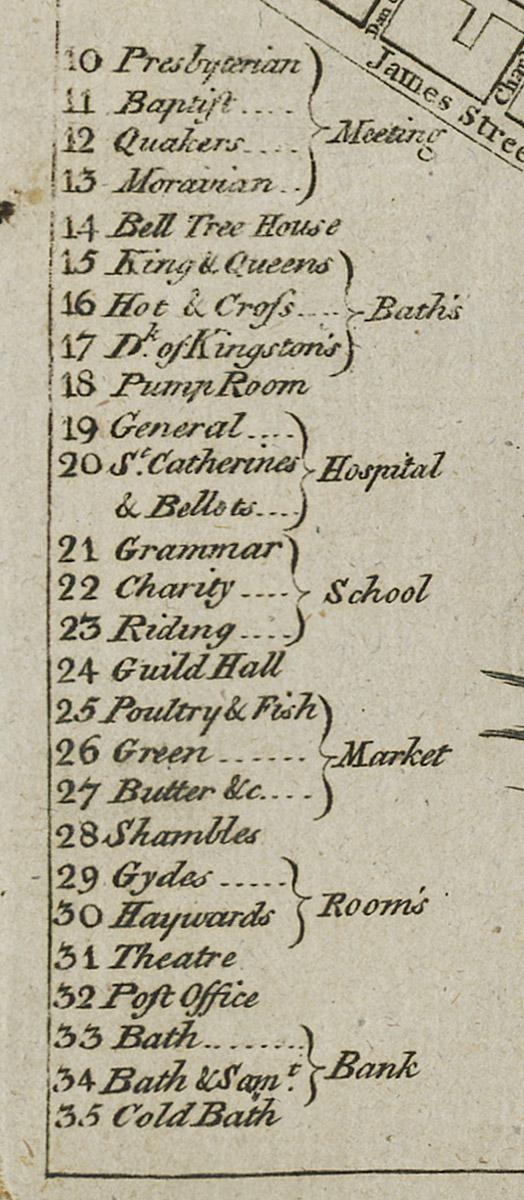 James Stree
10 Presbyterian
11 Baptist....
12 Quakers.... Meeting
13 Moravian..
14 Bell Tree House
15 King & Queens
16 Hot & Cross.... Bath's
17 Dk. of Kingston's
18 Pump Room
19 General....
20 St. Catherines Hospital
& Bellots....
21 Grammar
22 Charity.... School
23 Riding....
24 Guild Hall
25 Poultry & Fish
26 Green....... Market
27 Butter &c....
28 Shambles
29 Gydes.....
30 Haywards Room's
31 Theatre
32 Post Office
33 Bath........
34 Bath & Somt. Bank
35 Cold Bath